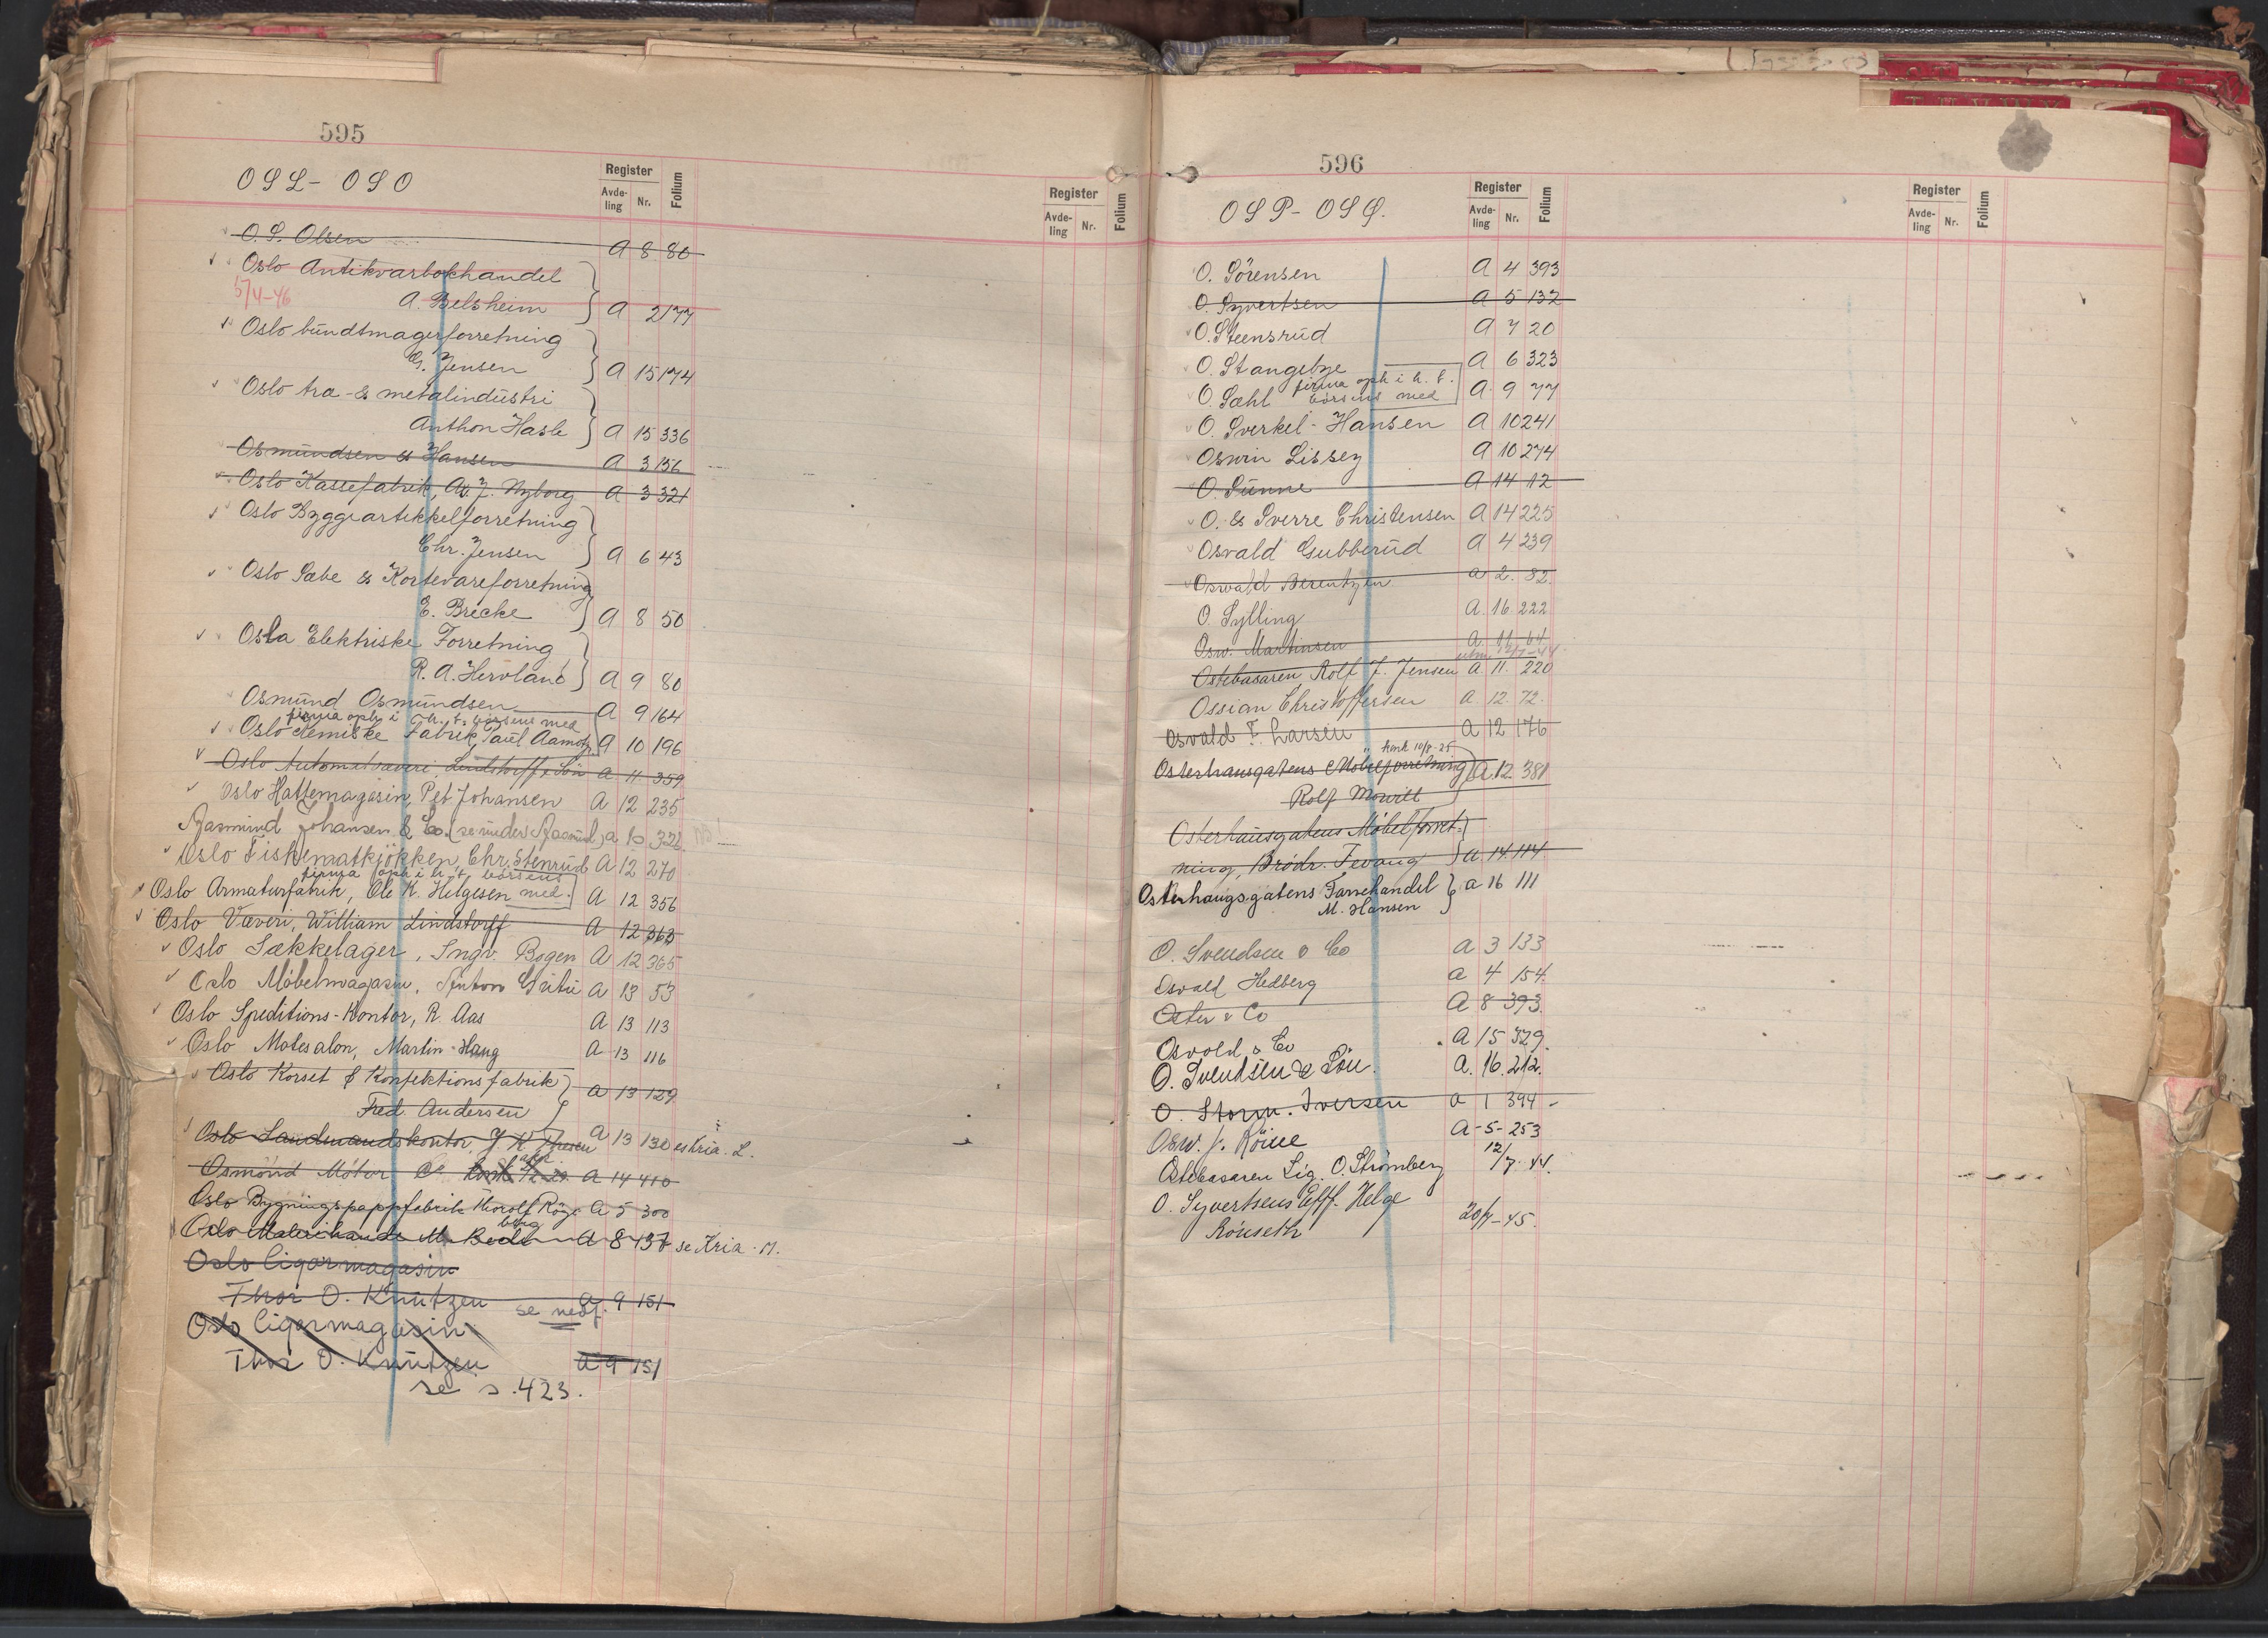 595
OSL - OSO
Register
Avde-
ling
Nr.
Folium
Register
Avde-
ling
Nr.
Folium
O. S. Olsen A 8 80
Oslo Antikvarbokhandel
5/4-46 A. Belsheim A 2 177
Oslo bundtmagerforretning
G. Jensen A 15 174
Oslo træ- & metalindustri
Anthon Hasle A 15 336
Osmundsen & Hansen A 3 156
Oslo Kassefabrik, A. J. Nyborg A 3 321
Oslo Byggeartikkelforretning
Chr. Jensen A 6 43
Oslo Sæbe & Kortevareforretning
E. Brecke A 8 50
Oslo Elektriske Forretning
R. A. Hervland A 9 80
Osmund Osmundsen A 9 164
firma oph i h. t. börsens med
Oslo Kemiske Fabrik, Paul Aamot A 10 196
Oslo Automatvæveri, Lindstorff & Sön A 11 359
Oslo Hattemagasin, Pet Johansen A 12 235
Aasmund Johansen & Co. (se under Aasmund) A 10 322
Oslo Fiskematkjökken, Chr. Stenrud A 12 270
firma oph i h. t. börsens
Oslo Armaturfabrik, Ole K. Helgesen med. A 12 356
Oslo Væveri, William Lindstorff A 12 363
Oslo Sækkelager, Ingv. Bogen A 12 365
Oslo Möbelmagasin, Anton A 13 53
Oslo Speditions-Kontor, R. Aas A 13 113
Oslo Motesalon, Martin Haug A 13 116
Oslo Korset & Konfektionsfabrik
Fred. Andersen A 13 129
Oslo Landmandskontor, A 13 130 Kria. L.
Osmund Motor Co A 14 410
Oslo Bygningspappfabrik Thorolf A 5 300
berg
Oslo Malerihandel M. A 8 137 se Kria. M.
Oslo Cigarmagasin
Thor O. Knutzen A 9 151
se nedf.
Oslo Cigarmagasin
Thor O. Knutzen A 9 151
se s. 423.
596
OSP - OSQ.
Register
Avde-
ling
Nr.
Folium
Register
Avde-
ling
Nr.
Folium
O. Sörensen A 4 393
O. Syvertsen A 5 132
O. Steensrud A 7 20
O. Stangebye A 6 323
firma oph i h. t.
O. Sæhl börsens med A 9 77
O. Sverkel-Hansen A 10 241
Oswin Lissey A 10 274
O. Sunne A 14 12
O. & Sverre Christensen A 14 225
Osvald Gubberud A 4 239
Oswald Berentzen A 2. 82.
O. Sylling A. 16. 222
Osw. Martinsen A. 11. 64
Ostebasaren, Rolf J. Jensen A. 11. 220
Ossian Christoffersen A. 12. 72.
Osvald F. Larsen A 12 176
konk 10/8-25
Osterhausgatens Möbelforretning A. 12. 381
Rolf Mowill
Osterhausgatens Möbelforret-
ning, Brödr. Fevang A. 14. 114.
Osterhausgatens Farvehandel A 16 111
M. Hansen
O. Svendsen & Co A 3 133
Osvald Hedberg A 4 154.
Oster & Co A 8 393.
Osvold & Co A 15 329.
O. Svendsen & Sön. A. 16. 212.
O. Storm. Iversen A 1 394 -
Osw. J. Röine A - 5 - 253
Ostebasaren Sig. O. Strömberg 12/7. 44.
O. Syvertsens Eftf. Helge
Rönseth 20/7-45.